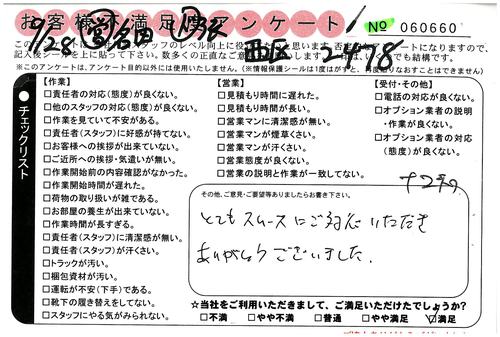 お客様不満足度アンケート
No 060660
9/28
西区
2478
記入後シールを上に貼って下さい。数多くの正直なご意
でも結構です。
(※このアンケートは、アンケート目的以外には使用いたしません。)(※情報保護シールは1度はがすと、再度貼りなおすことはできません)
チェックリスト
【作業】
□責任者の対応(態度)が良くない。
□他のスタッフの対応(態度)が良くない。
□作業を見ていて不安がある。
□責任者(スタッフ)に好感が持てない。
□お客様への挨拶が出来ていない。
□ご近所への挨拶・気遣いが無い。
□作業開始前の内容確認がなかった。
□作業開始時間が遅れた。
□荷物の取り扱いが雑である。
□お部屋の養生が出来ていない。
□作業時間が長すぎる。
□責任者(スタッフ)に清潔感が無い。
□責任者(スタッフ)が汗くさい。
□トラックが汚い。
□梱包資材が汚い。
□運転が不安(下手)である。
□靴下の履き替えをしてない。
□スタッフにやる気がみられない。
【営業】
□見積もり時間に遅れた。
□見積もり時間が長い。
□営業マンに清潔感が無い。
□営業マンが煙草くさい。
□営業マンが汗くさい。
□営業態度が良くない。
□営業の説明と作業が一致してない。
【受付・その他】
□電話の対応が良くない。
□オプション業者の説明
・作業が良くない。
□オプション業者の対応
(態度)が良くない。
その他、ご意見・ご要望等ありましたらお書き下さい。
とてもスムーズにご対応いただき
ありがとうございました。
☆当社をご利用いただきまして、ご満足いただけたでしょうか?
□不満 □やや不満 □普通 □やや満足 ☑満足